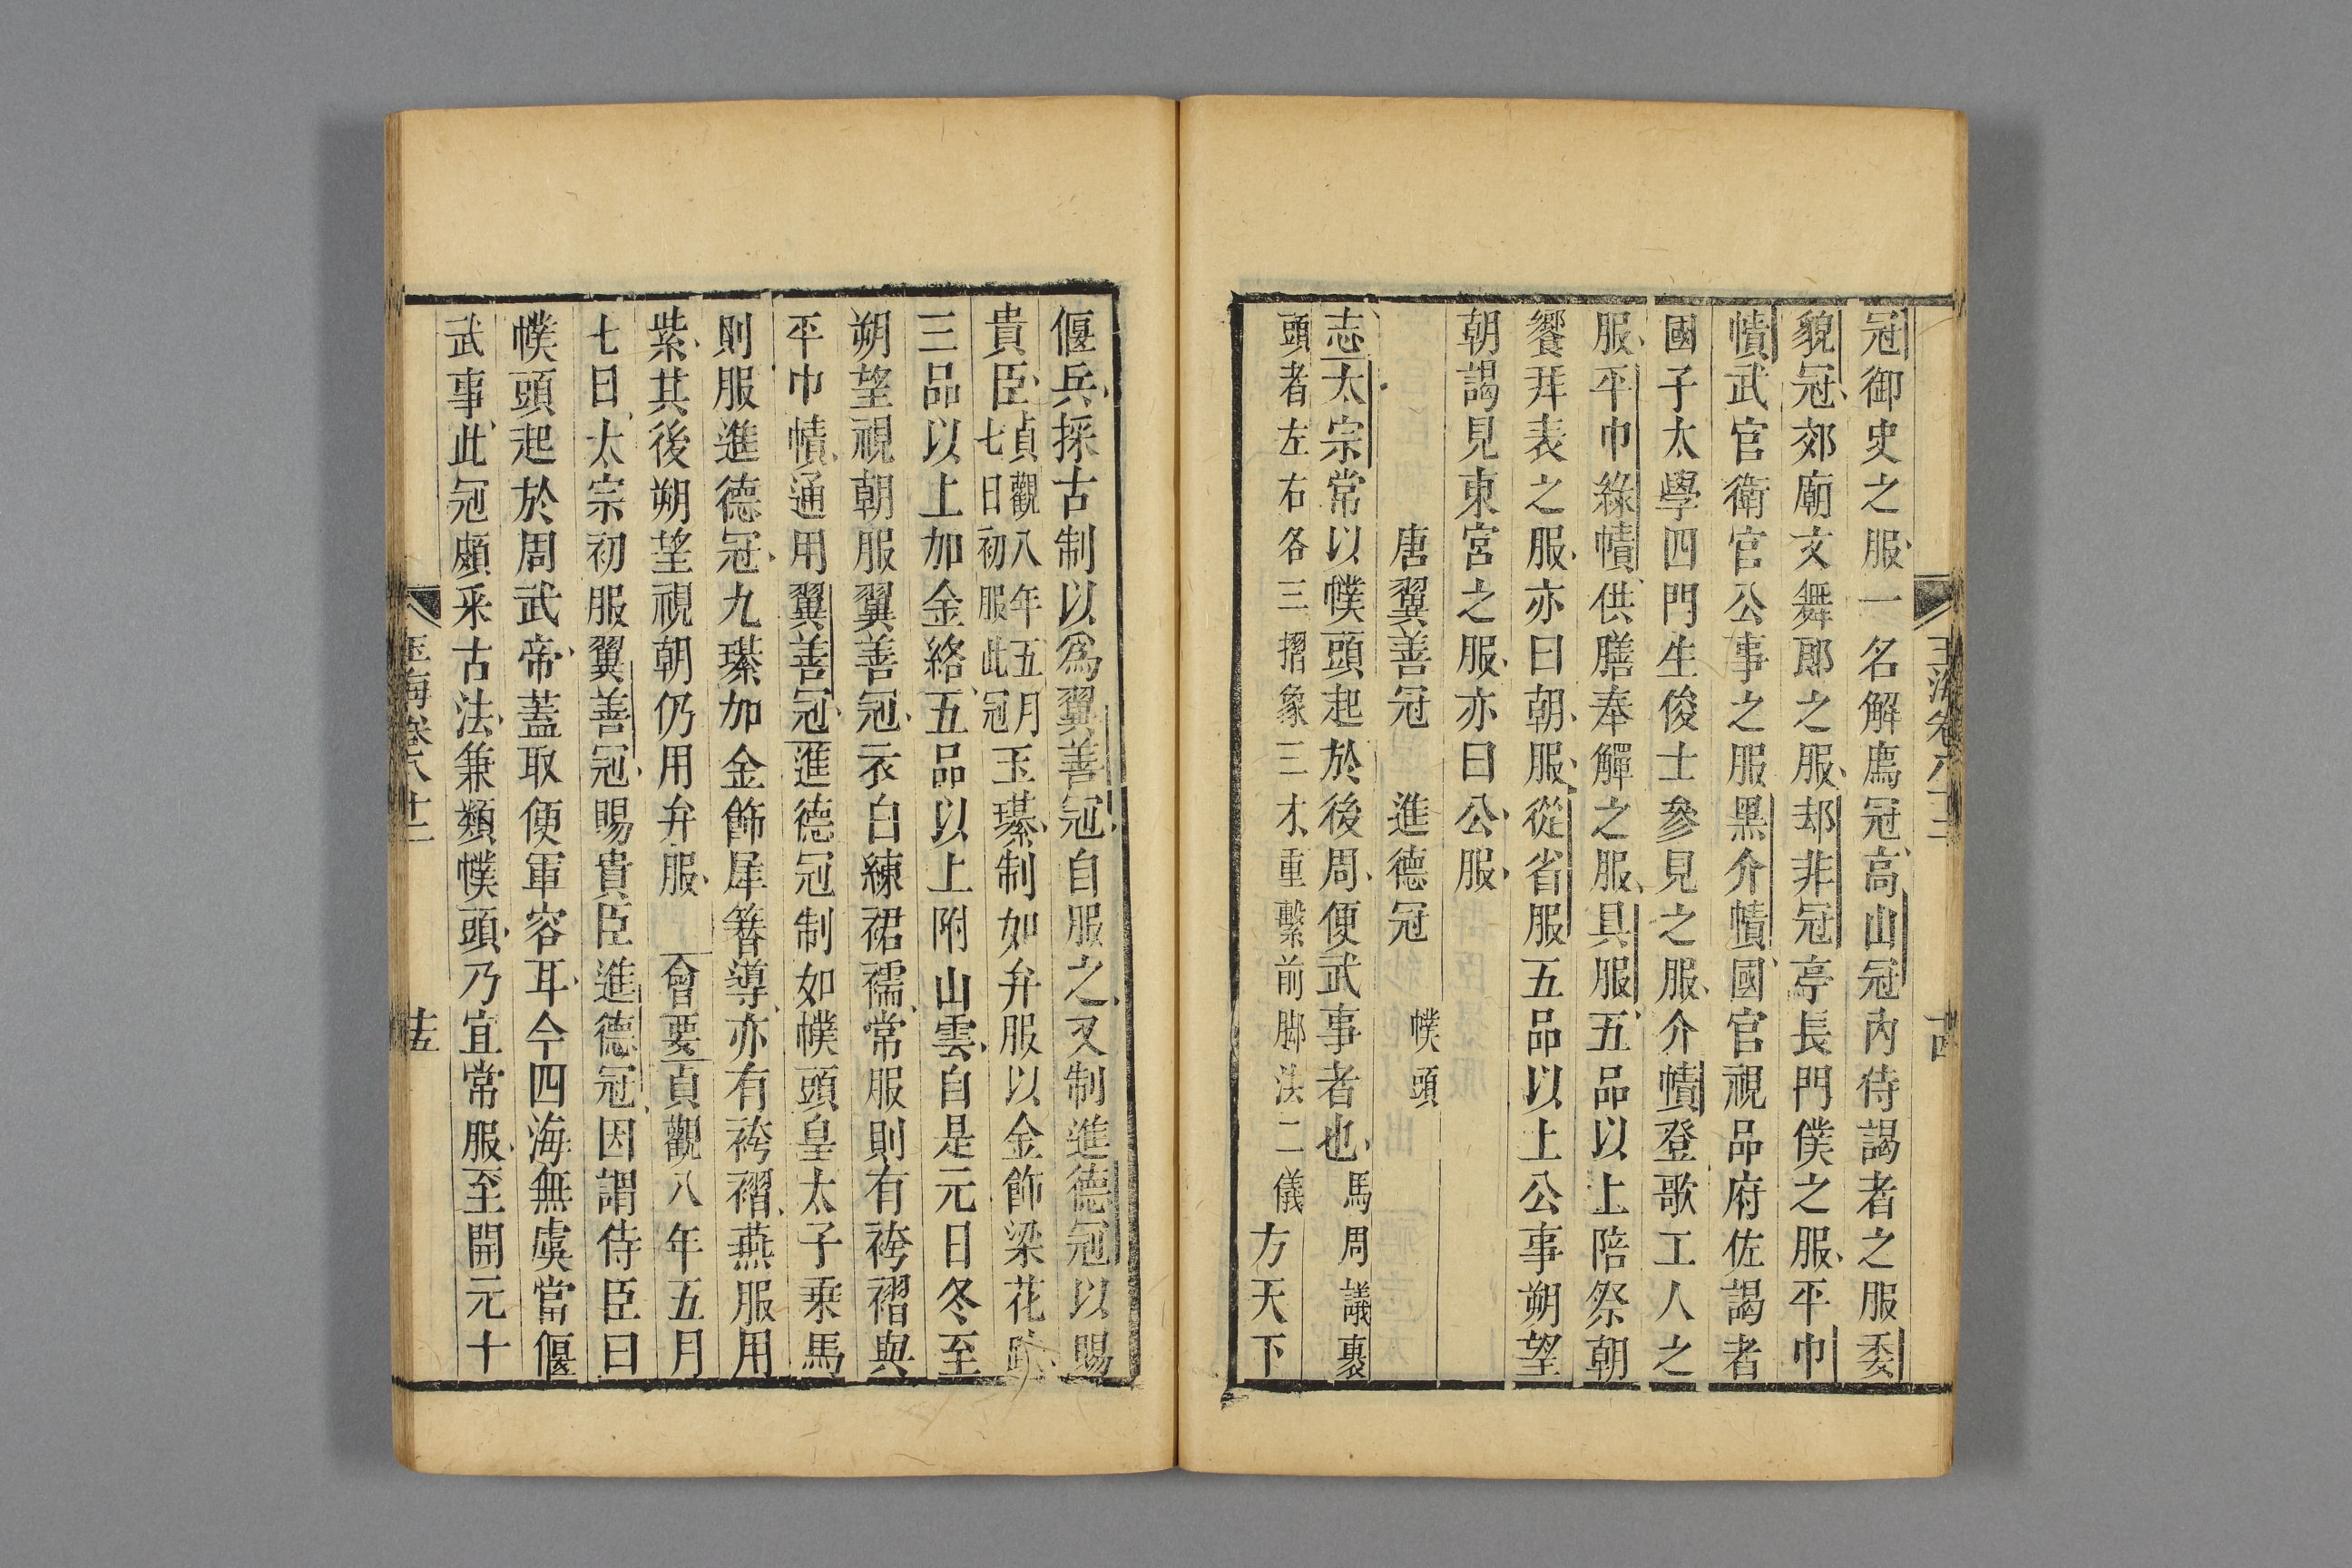 冠御史之服一名解廌冠高山冠內侍謁者之服委
貌冠郊廟文舞郎之服却非冠亭長門僕之服平巾
幘武官衛官公事之服黑介幘國官視品府佐謁者
國子太學四門生俊士參見之服介幘登歌工人之
服平巾綠幘供膳奉觶之服具服五品以上陪祭朝
饗拜表之服亦曰朝服從省服五品以上公事朔望
朝謁見東宮之服亦曰公服
唐翼善冠 進德冠 幞頭
志太宗常以幞頭起於後周便武事者也馬周議裹
頭者左右各三摺象三才重繫前脚法二儀方天下
偃兵採古制以為翼善冠自服之又制進德冠以賜
貴臣貞觀八年五月七日初服此冠玉璂制如弁服以金飾梁花趺
三品以上加金絡五品以上附山雲自是元日冬至
朔望視朝服翼善冠衣白練裙襦常服則有袴褶與
平巾幘通用翼善冠進德冠制如幞頭皇太子乘馬
則服進德冠九璂加金飾犀簪導亦有袴褶燕服用
紫其後朔望視朝仍用弁服 會要貞觀八年五月
七日太宗初服翼善冠賜貴臣進德冠因謂侍臣曰
幞頭起於周武帝蓋取便軍容耳今四海無虞當偃
武事此冠頗采古法兼類幞頭乃宜常服至開元十
玉海卷八十二
十五